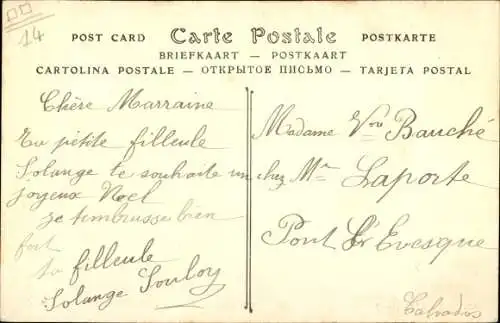 14
POST CARD Carte Postale POSTKARTE
BRIEFKAART — POSTKAART
CARTOLINA POSTALE — ОТКРЫТОЕ ПИСЬМО — TARJETA POSTAL
Chère Marraine
Ta petite filleule
Solange te souhaite un
joyeux Noel
je t'embrasse bien
fort
ta filleule
Solange Souloy
Madame Vve Bauché
chez Mme Laporte
Pont L'Evesque
Calvados